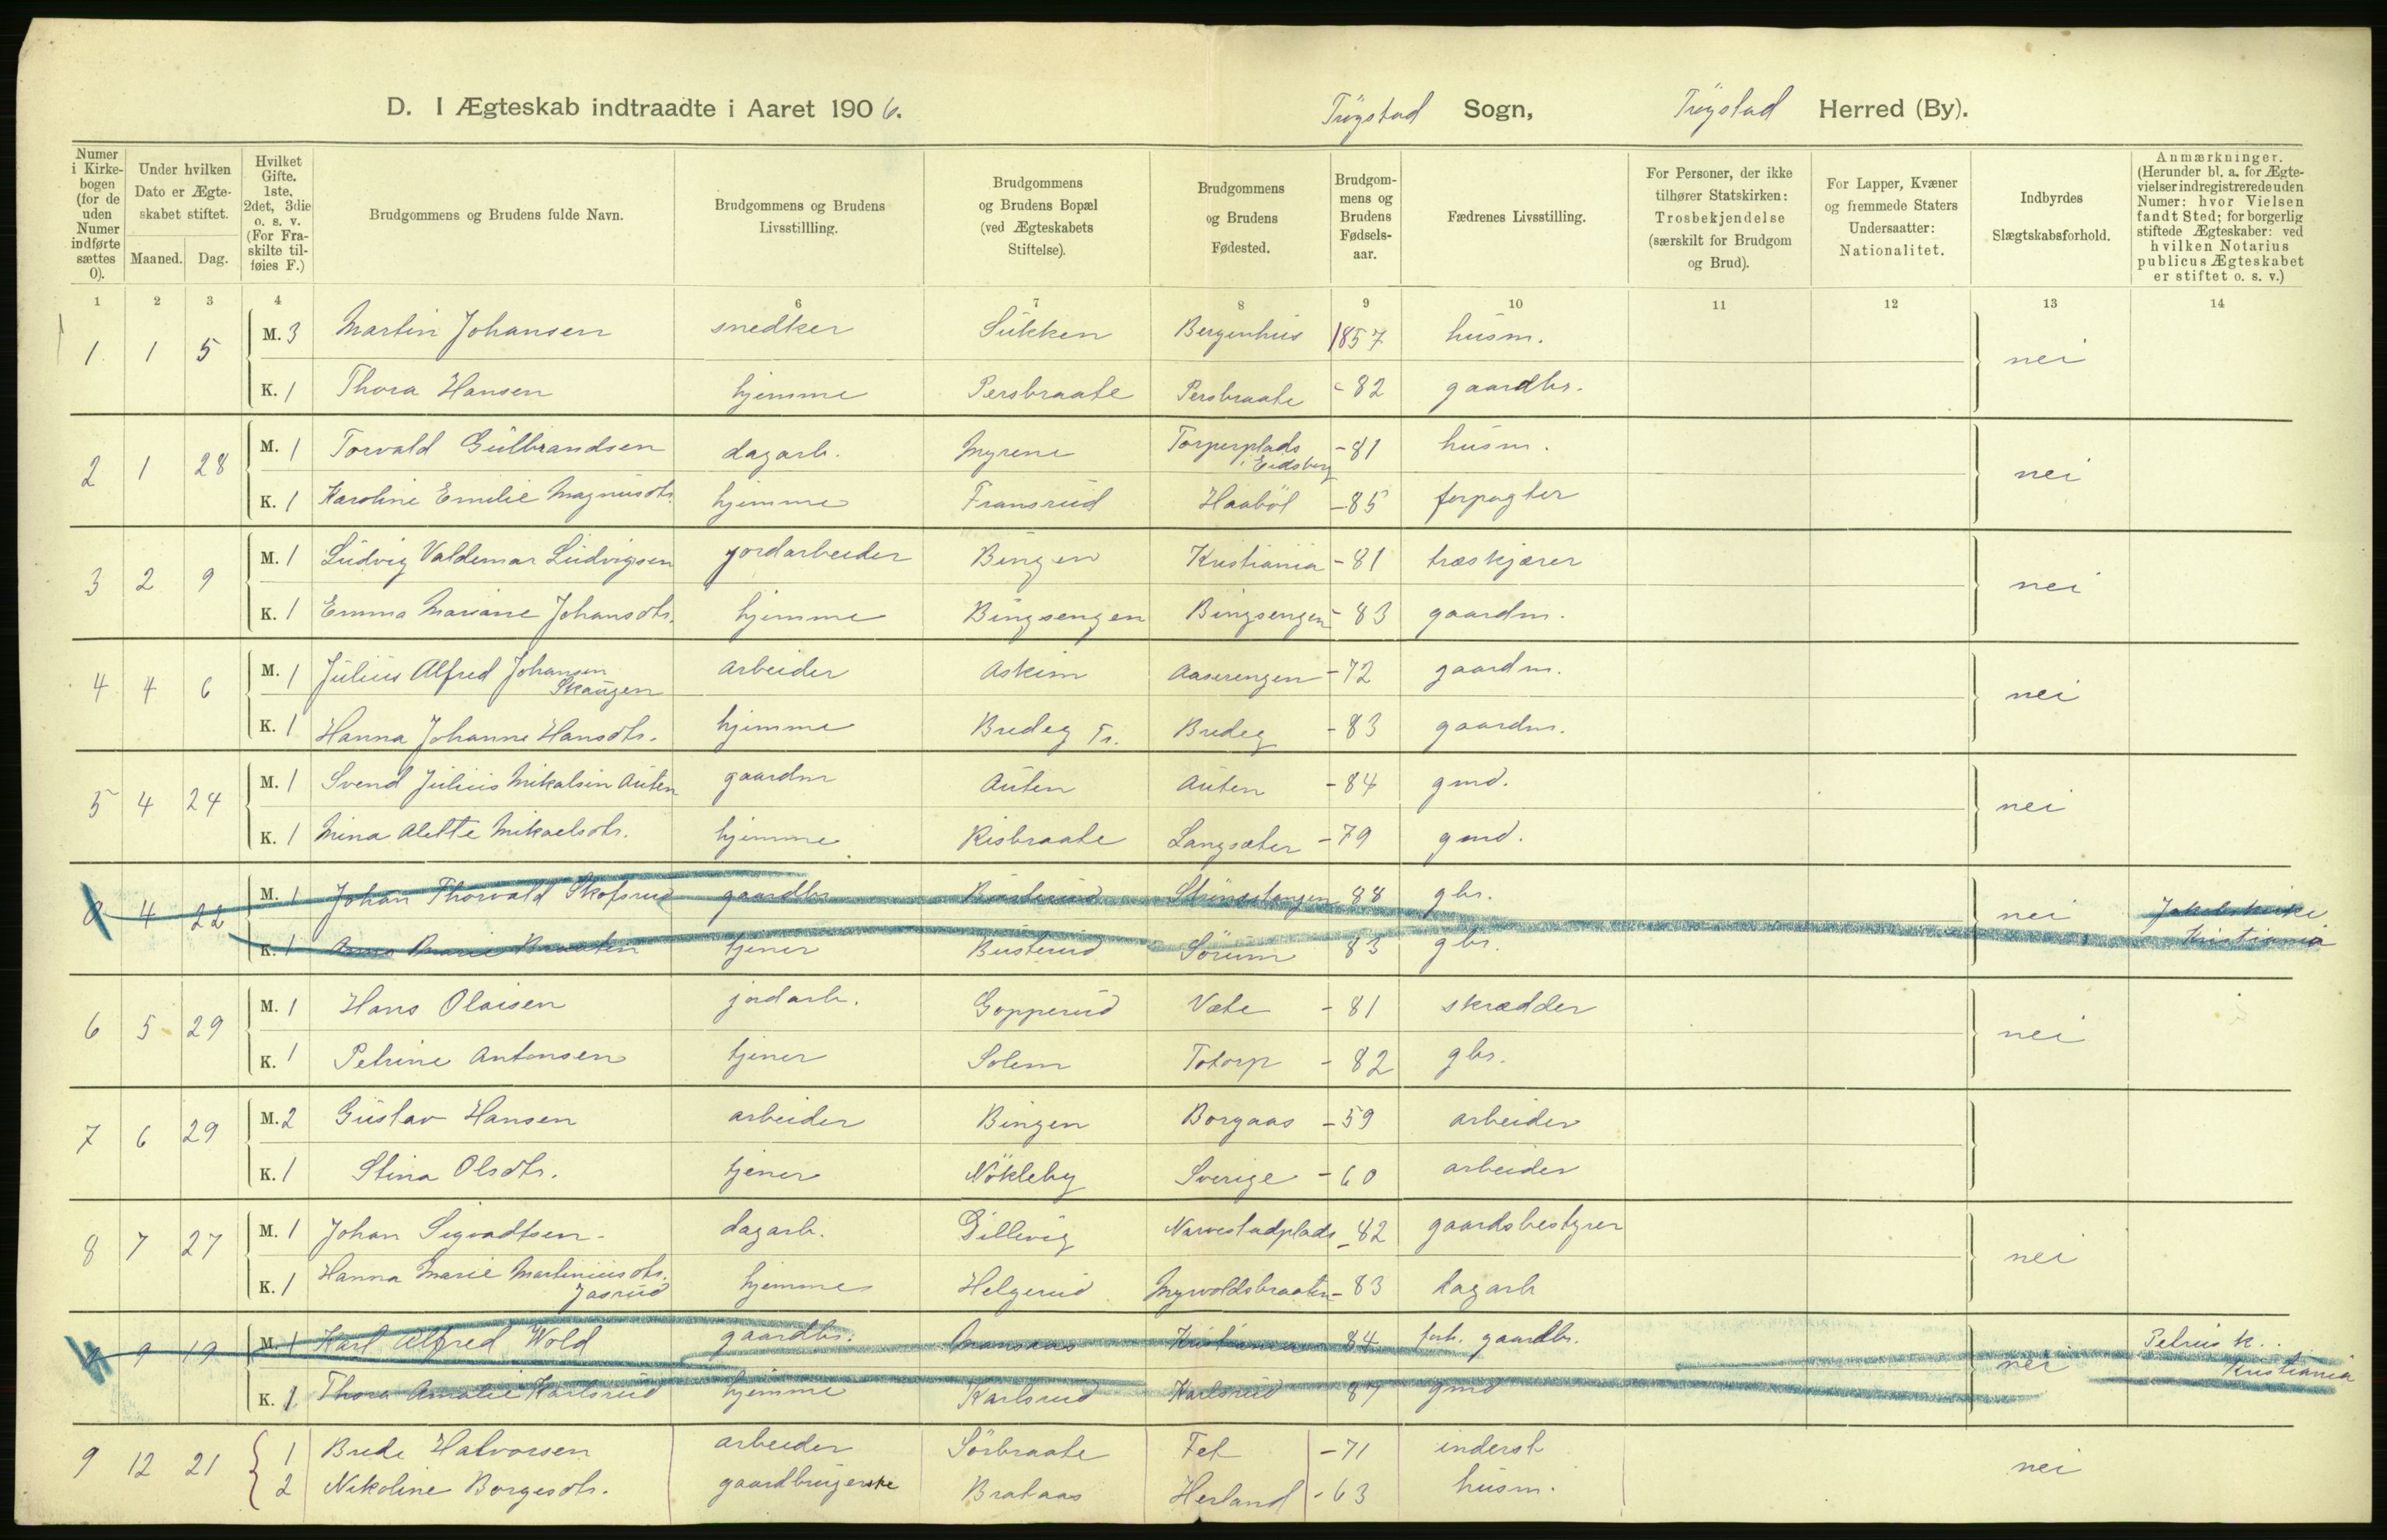 D. I Ægteskab indtraadte i Aaret 1906. Trögstad Sogn, Trögstad Herred (By).
Numer i Kirkebogen (for de uden Numer indførte sættes 0). Under hvilken Dato er Ægteskabet stiftet. Maaned. Dag. Hvilket Gifte. 1ste, 2det, 3die o. s. v. (For Fraskilte tilføies F.) Brudgommens og Brudens fulde Navn. Brudgommens og Brudens Livsstillling. Brudgommens og Brudens Bopæl (ved Ægteskabets Stiftelse). Brudgommens og Brudens Fødested. Brudgommens og Brudens Fødselsaar. Fædrenes Livsstilling. For Personer, der ikke tilhører Statskirken: Trosbekjendelse (særskilt for Brudgom og Brud). For Lapper, Kvæner og fremmede Staters Undersaatter: Nationalitet. Indbyrdes Slægtskabsforhold. Anmærkninger. (Herunder bl. a. for Ægtevielser indregistrerede uden Numer: hvor Vielsen fandt Sted; for borgerlig stiftede Ægteskaber: ved hvilken Notarius publicus Ægteskabet er stiftet o. s. v.)
1 2 3 4 6 7 8 9 10 11 12 13 14
1 1 5 M. 3 Martin Johansen snedker Sukken Bergenhus 1857 husm. nei
K. 1 Thora Hansen hjemme Persbraate Persbraate - 82 gaardbr.
2 1 28 M. 1 Torvald Gulbrandsen dagarb. Myrene Torperplads i Eidsberg - 81 husm. nei
K. 1 Karoline Emilie Magnusdtr. hjemme Fransrud Haaböl - 85 forpagter
3 2 9 M. 1 Ludvig Valdemar Ludvigsen jordarbeider Bingen Kristiania - 81 træskjærer nei
K. 1 Emma Mariane Johansdtr. hjemme Bingsengen Bingsengen - 83 gaardm.
4 4 6 M. 1 Julius Alfred Johansen Skaugen arbeider Askim Aaserengen - 72 gaardm. nei
K. 1 Hanna Johanne Hansdtr. hjemme Bredeg Tr. Bredeg - 83 gaardm.
5 4 24 M. 1 Svend Julius Mikalsen Auten gaardm Auten Auten - 84 gmd. nei
K. 1 Mina Alette Mikaelsdtr. hjemme Risbraate Langsæter - 79 gmd.
0 4 22 M. 1 Johan Thorvald Skofsrud gaardbr. Busterud 88 gbr. nei Jakobskirke
K. 1 Anna Marie Braaten tjener Busterud Sörum 83 gbr. Kristiania
6 5 29 M. 1 Hans Olaisen jordarb. Gopperud Væte - 81 skrædder nei
K. 1 Petrine Antonsen tjener Solem Totorp - 82 gbr.
7 6 29 M. 2 Gustav Hansen arbeider Bingen Borgaas - 59 arbeider
K. 1 Stina Olsdtr. tjener Nökleby Sverige - 60 arbeider
8 7 27 M. 1 Johan Sigvadtsen dagarb. Dillevig Narvestadplads - 82 gaardsbestyrer nei
K. 1 Hanna Marie Martiniusdtr. Jasrud hjemme Helgerud Myrvoldsbraaten - 83 dagarb
9 19 M. 1 Karl Alfred Wold gaardbr. Kristiania 84 forh. gaardbr. nei Petrus k.
K. 1 Thora Amalie Karlsrud hjemme Karlsrud Karlsrud 87 gmd Kristiania
9 12 21 1 Brede Halvorsen arbeider Sörbraate Fet - 71 inderst nei
2 Nikoline Borgesdtr. gaardbrugerske Brataas Herland - 63 husm.